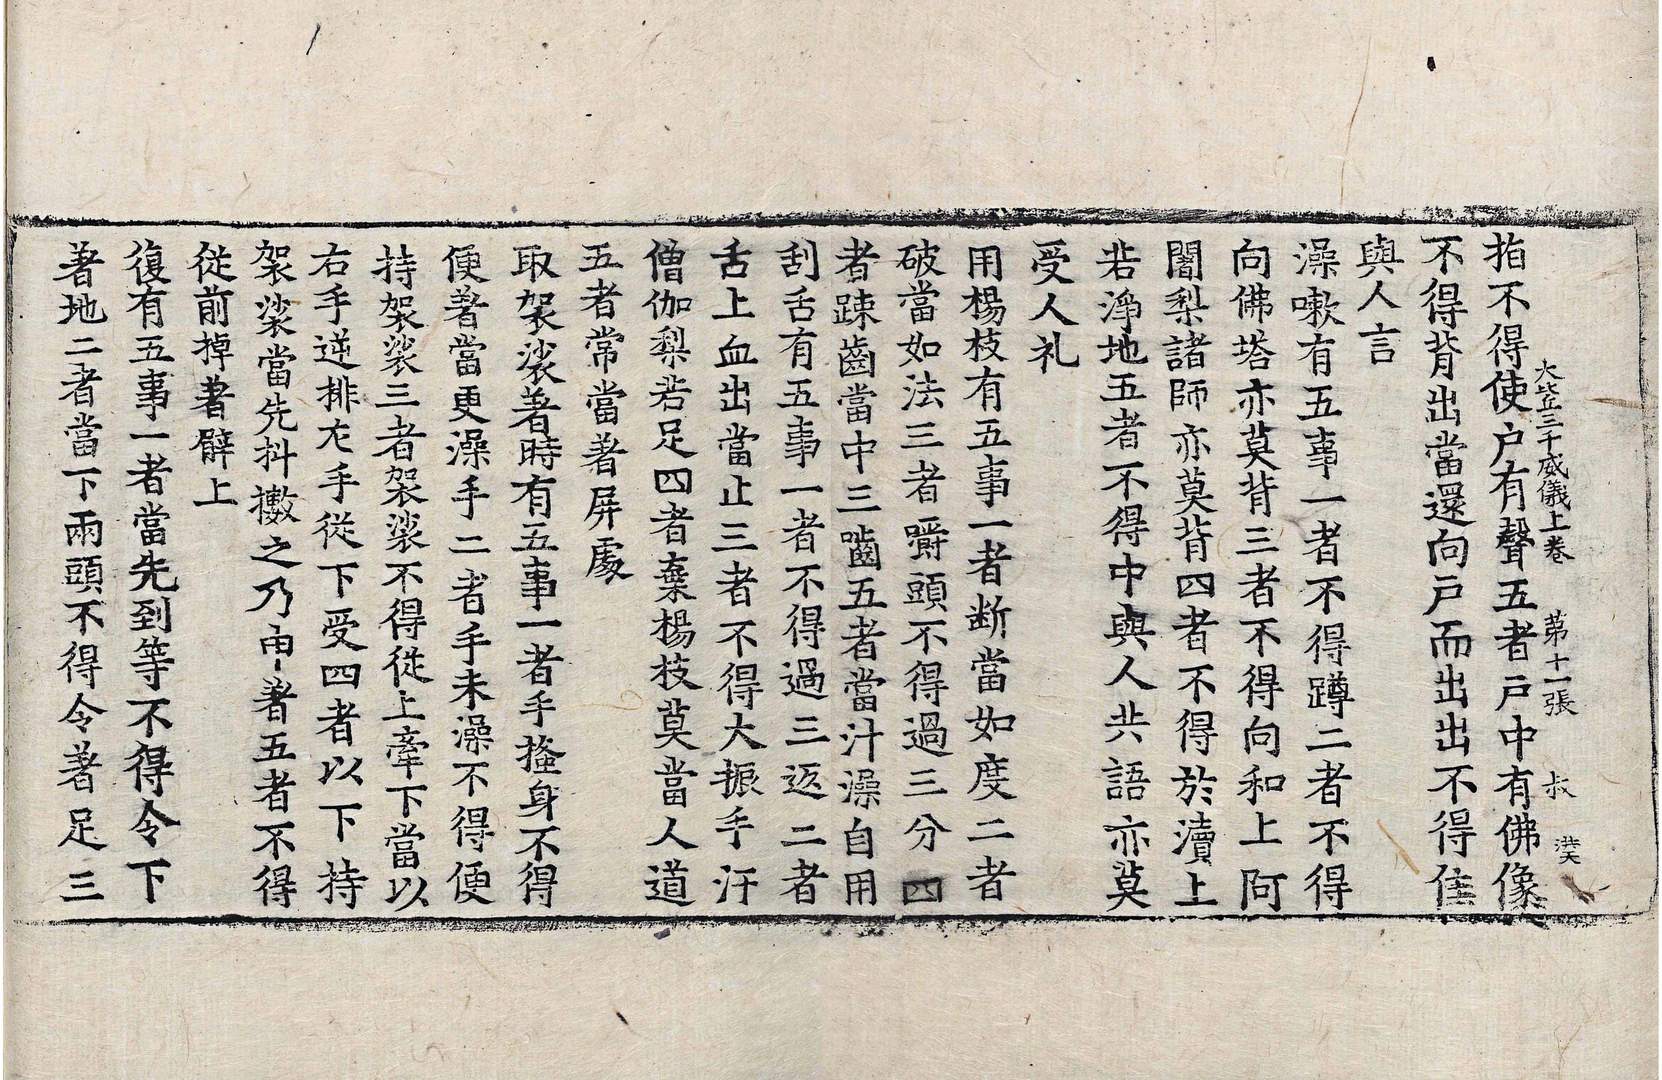 大比丘三千威儀上卷 第十一張 叔 濮
指不得使户有聲五者户中有佛像
不得背出當還向户而出出不得住
與人言
澡嗽有五事一者不得蹲二者不得
向佛塔亦莫背三者不得向和上阿
闍梨諸師亦莫背四者不得於瀆上
若淨地五者不得中與人共語亦莫
受人礼
用楊枝有五事一者断當如度二者
破當如法三者嚼頭不得過三分四
者踈齒當中三嚙五者當汁澡自用
刮舌有五事一者不得過三返二者
舌上血出當止三者不得大振手汙
僧伽梨若足四者棄楊枝莫當人道
五者常當著屏處
取袈裟著時有五事一者手搔身不得
便著當更澡手二者手未澡不得便
持袈裟三者袈裟不得從上牽下當以
右手逆排左手從下受四者以下持
袈裟當先抖擻之乃申著五者不得
從前掉著臂上
復有五事一者當先到等不得令下
著地二者當下兩頭不得令著足三